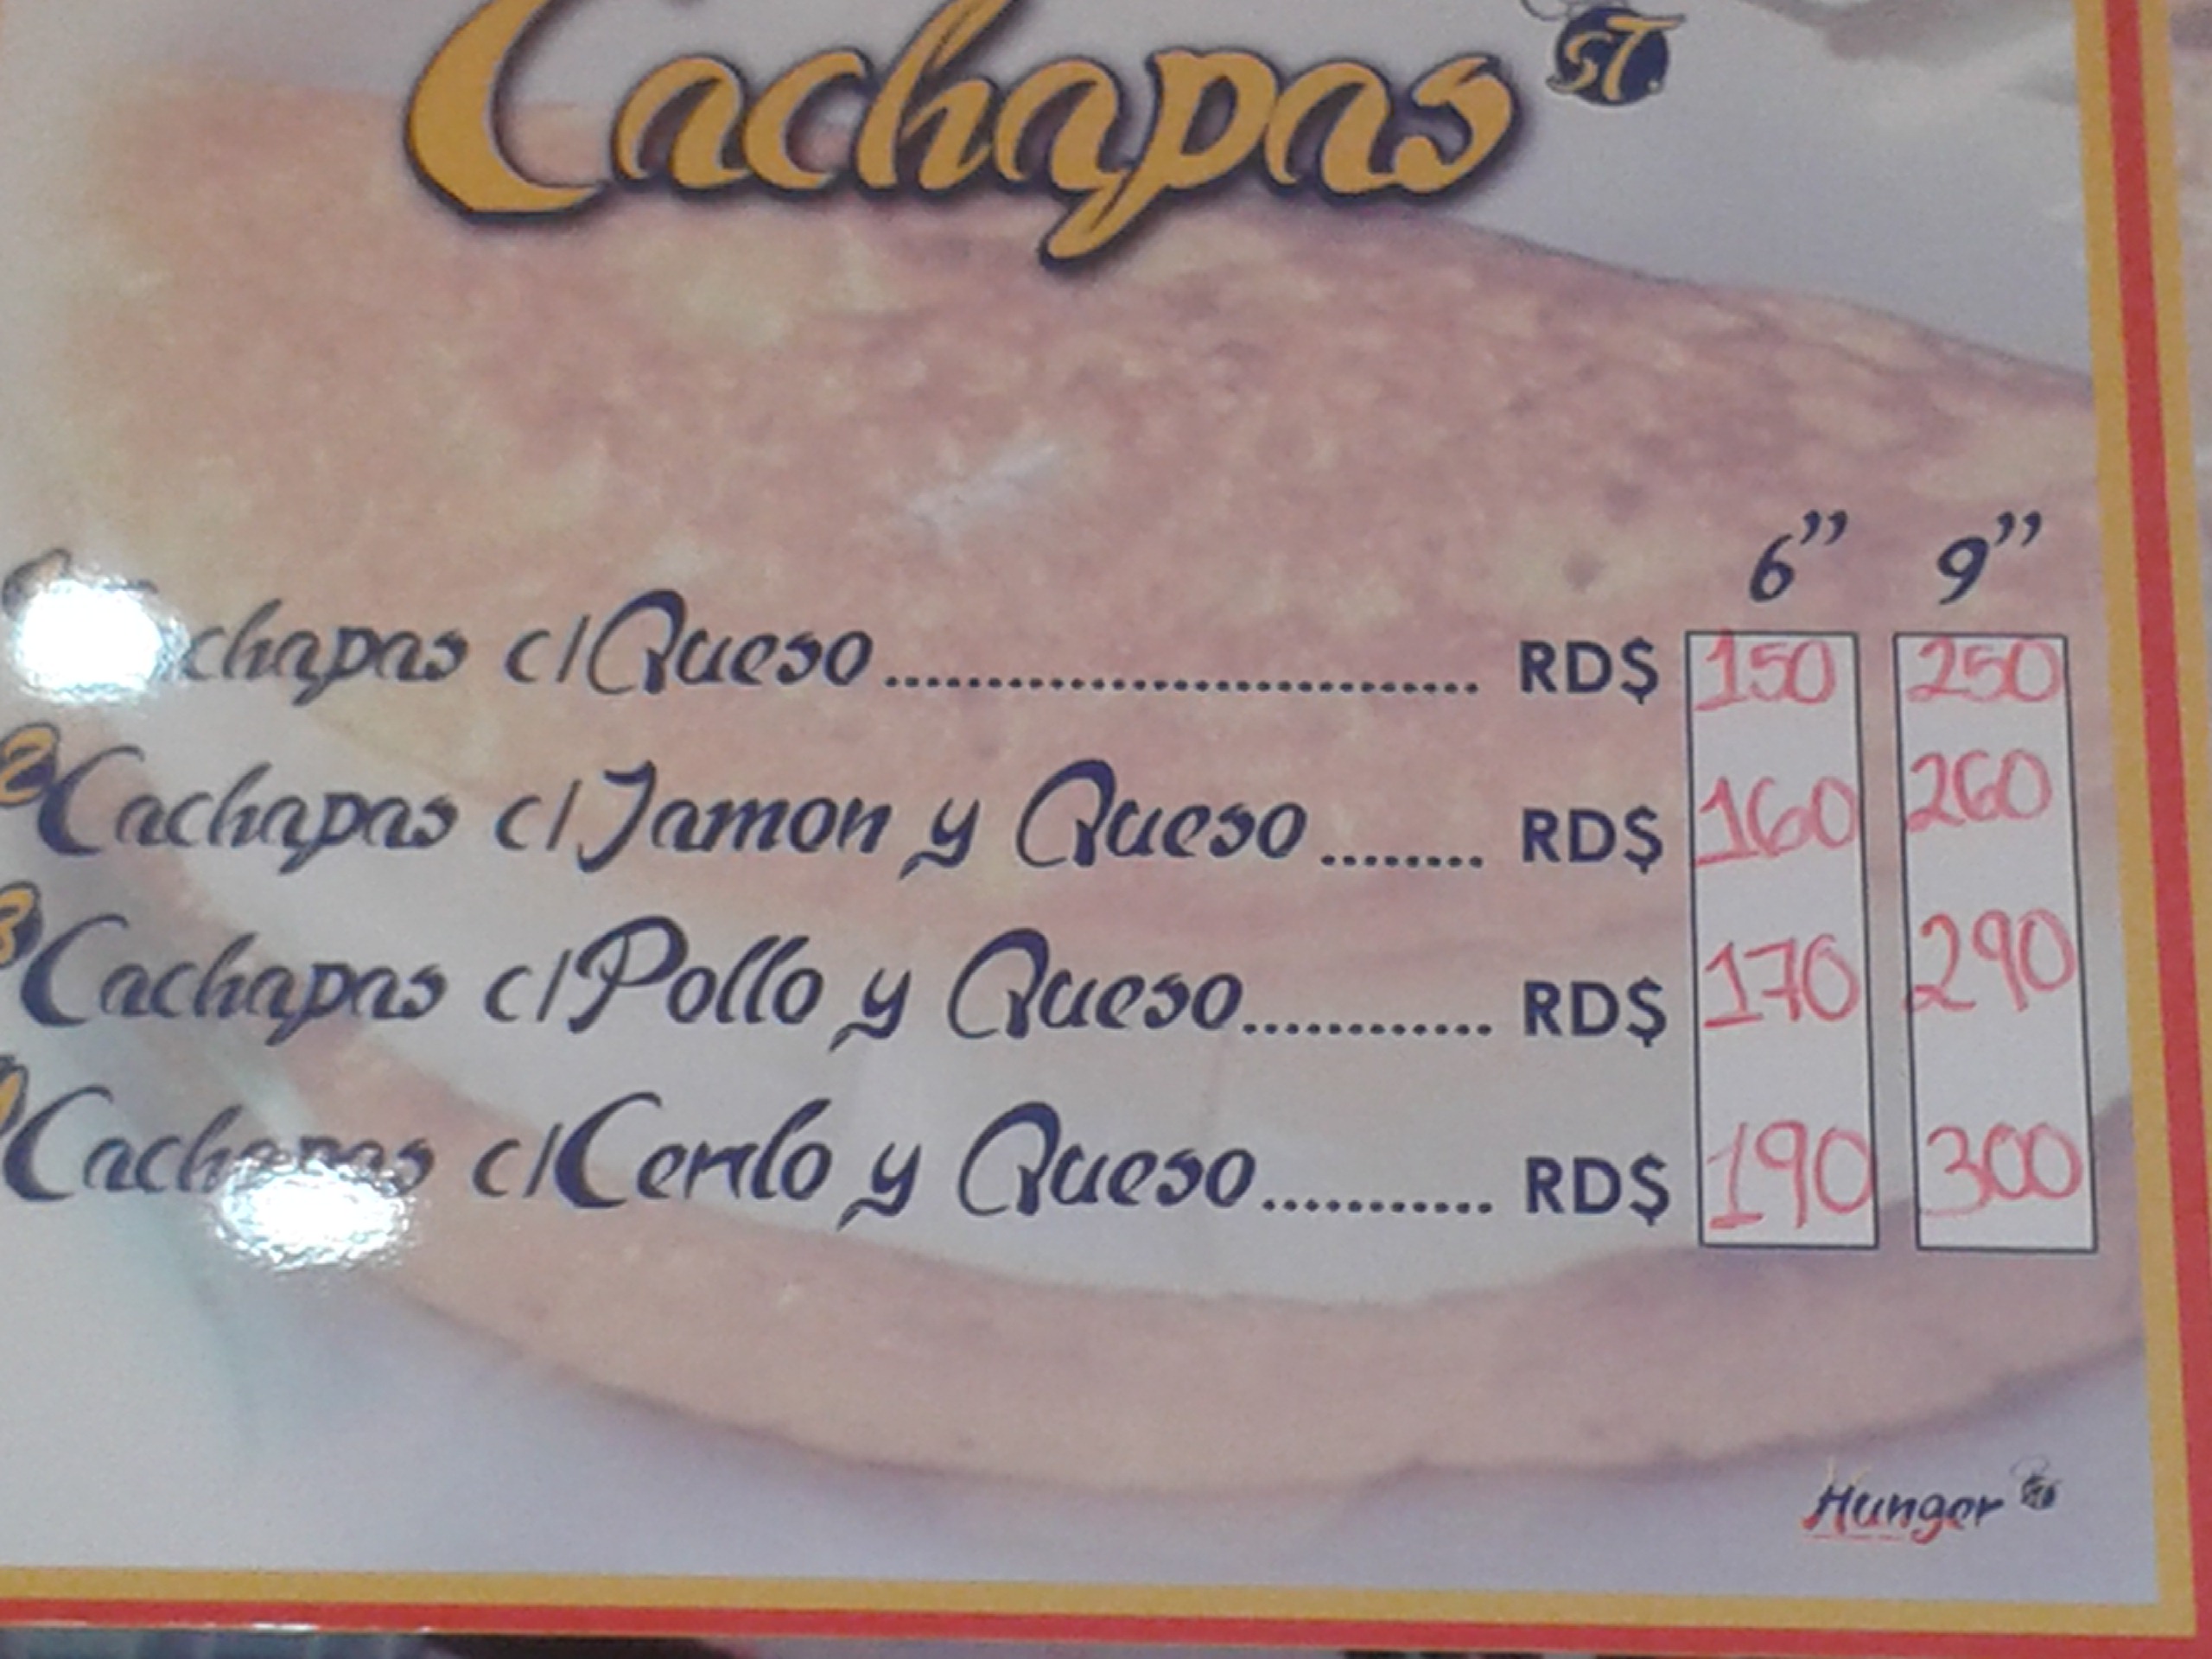 Cachapas ST.
6” 9”
Cachapas c/Queso RD$ 150 250
2 Cachapas c/Jamon y Queso RD$ 160 260
3 Cachapas c/Pollo y Queso RD$ 170 290
Cachapas c/Cerdo y Queso RD$ 190 300
Hunger